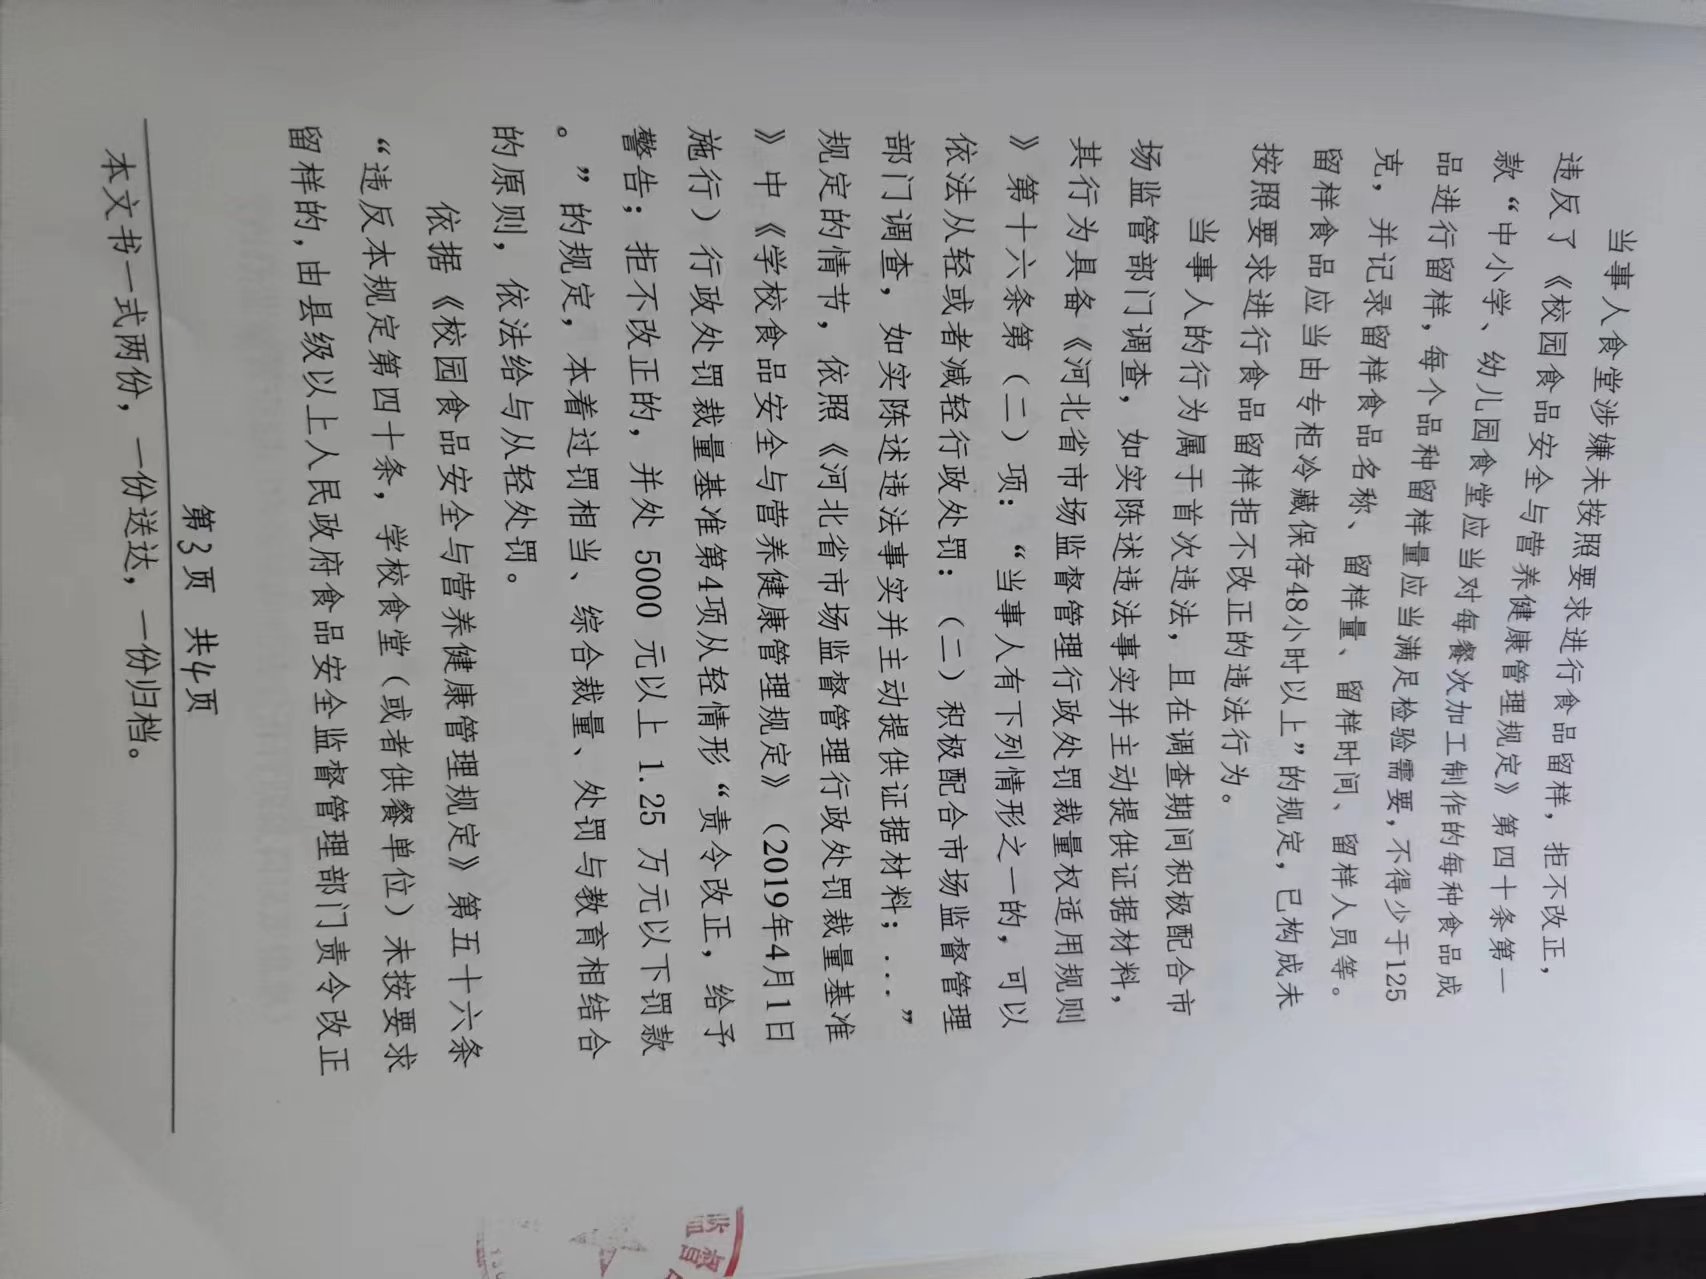 当事人食堂涉嫌未按照要求进行食品留样，拒不改正，
违反了《校园食品安全与营养健康管理规定》第四十条第一
款“中小学、幼儿园食堂应当对每餐次加工制作的每种食品成
品进行留样，每个品种留样量应当满足检验需要，不得少于125
克，并记录留样食品名称、留样量、留样时间、留样人员等。
留样食品应当由专柜冷藏保存48小时以上”的规定，已构成未
按照要求进行食品留样拒不改正的违法行为。
当事人的行为属于首次违法，且在调查期间积极配合市
场监管部门调查，如实陈述违法事实并主动提供证据材料，
其行为具备《河北省市场监督管理行政处罚裁量权适用规则
》第十六条第（二）项：“当事人有下列情形之一的，可以
依法从轻或者减轻行政处罚：（二）积极配合市场监督管理
部门调查，如实陈述违法事实并主动提供证据材料；...”
规定的情节，依照《河北省市场监督管理行政处罚裁量基准
》中《学校食品安全与营养健康管理规定》（2019年4月1日
施行）行政处罚裁量基准第4项从轻情形“责令改正，给予
警告；拒不改正的，并处 5000 元以上 1.25 万元以下罚款
。”的规定，本着过罚相当、综合裁量、处罚与教育相结合
的原则，依法给与从轻处罚。
依据《校园食品安全与营养健康管理规定》第五十六条
“违反本规定第四十条，学校食堂（或者供餐单位）未按要求
留样的，由县级以上人民政府食品安全监督管理部门责令改正
第3页 共4页
本文书一式两份，一份送达，一份归档。
监督